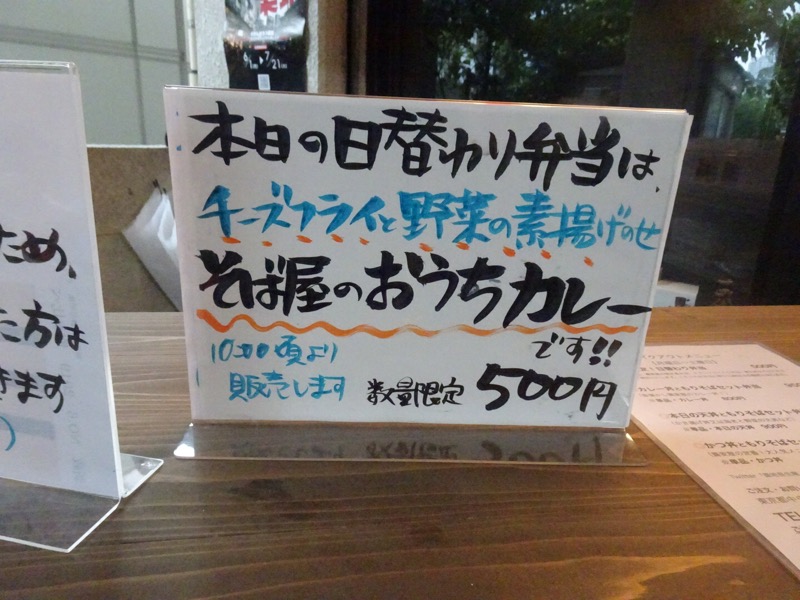 本日の日替わり弁当は、
チーズフライと野菜の素揚げのせ
そば屋のおうちカレー
です!!
10:00頃より
販売します
数量限定 500円
ため、
た方は
きます
カレー丼ともりそばセット弁当
本日の天丼ともりそばセット弁
かつ丼ともりそばセット
◎単品・かつ丼
ご注文・お問
TEL